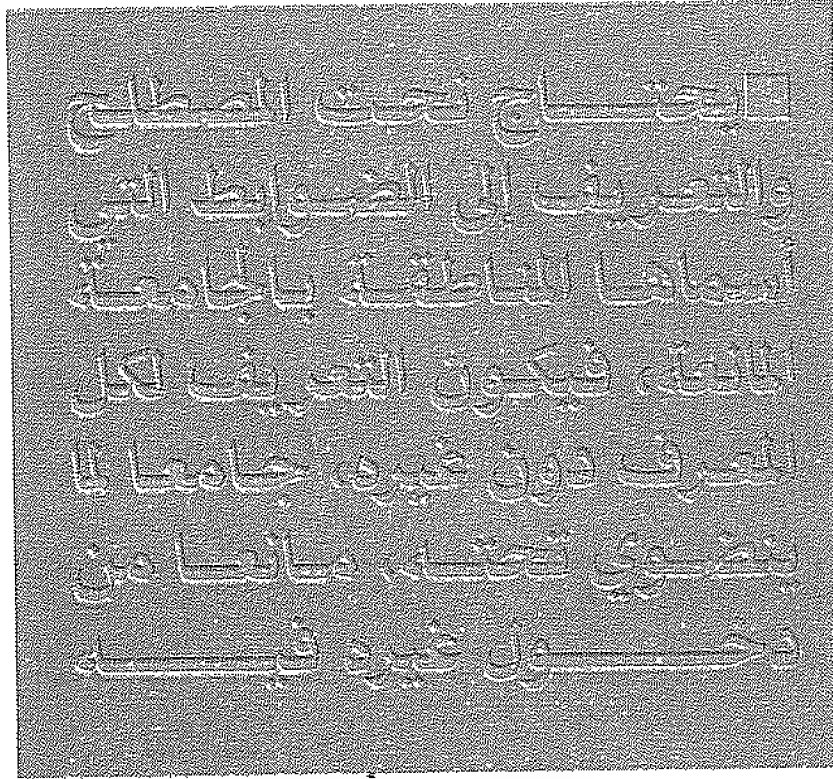 □ يحتاج نحت المصطلح
والتعريف إلى الضوابط التي
أسماها المناطقة بالجامعة
المانعة، فيكون التعريف لكل
المعرف دون غيره، جامعا لما
ينضوي تحته، مانعا من
دخول غيره فيه